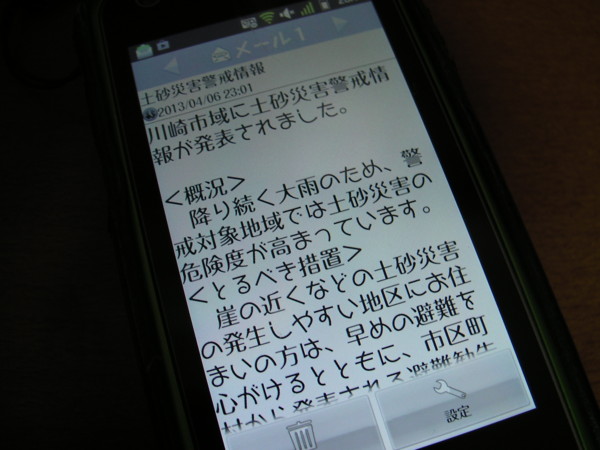 メール1
土砂災害警戒情報
2013/04/06 23:01
川崎市域に土砂災害警戒情
報が発表されました。
＜概況＞
降り続く大雨のため、警
戒対象地域では土砂災害の
危険度が高まっています。
＜とるべき措置＞
崖の近くなどの土砂災害
の発生しやすい地区にお住
まいの方は、早めの避難を
心がけるとともに、市区町
村から発表される避難勧告
設定